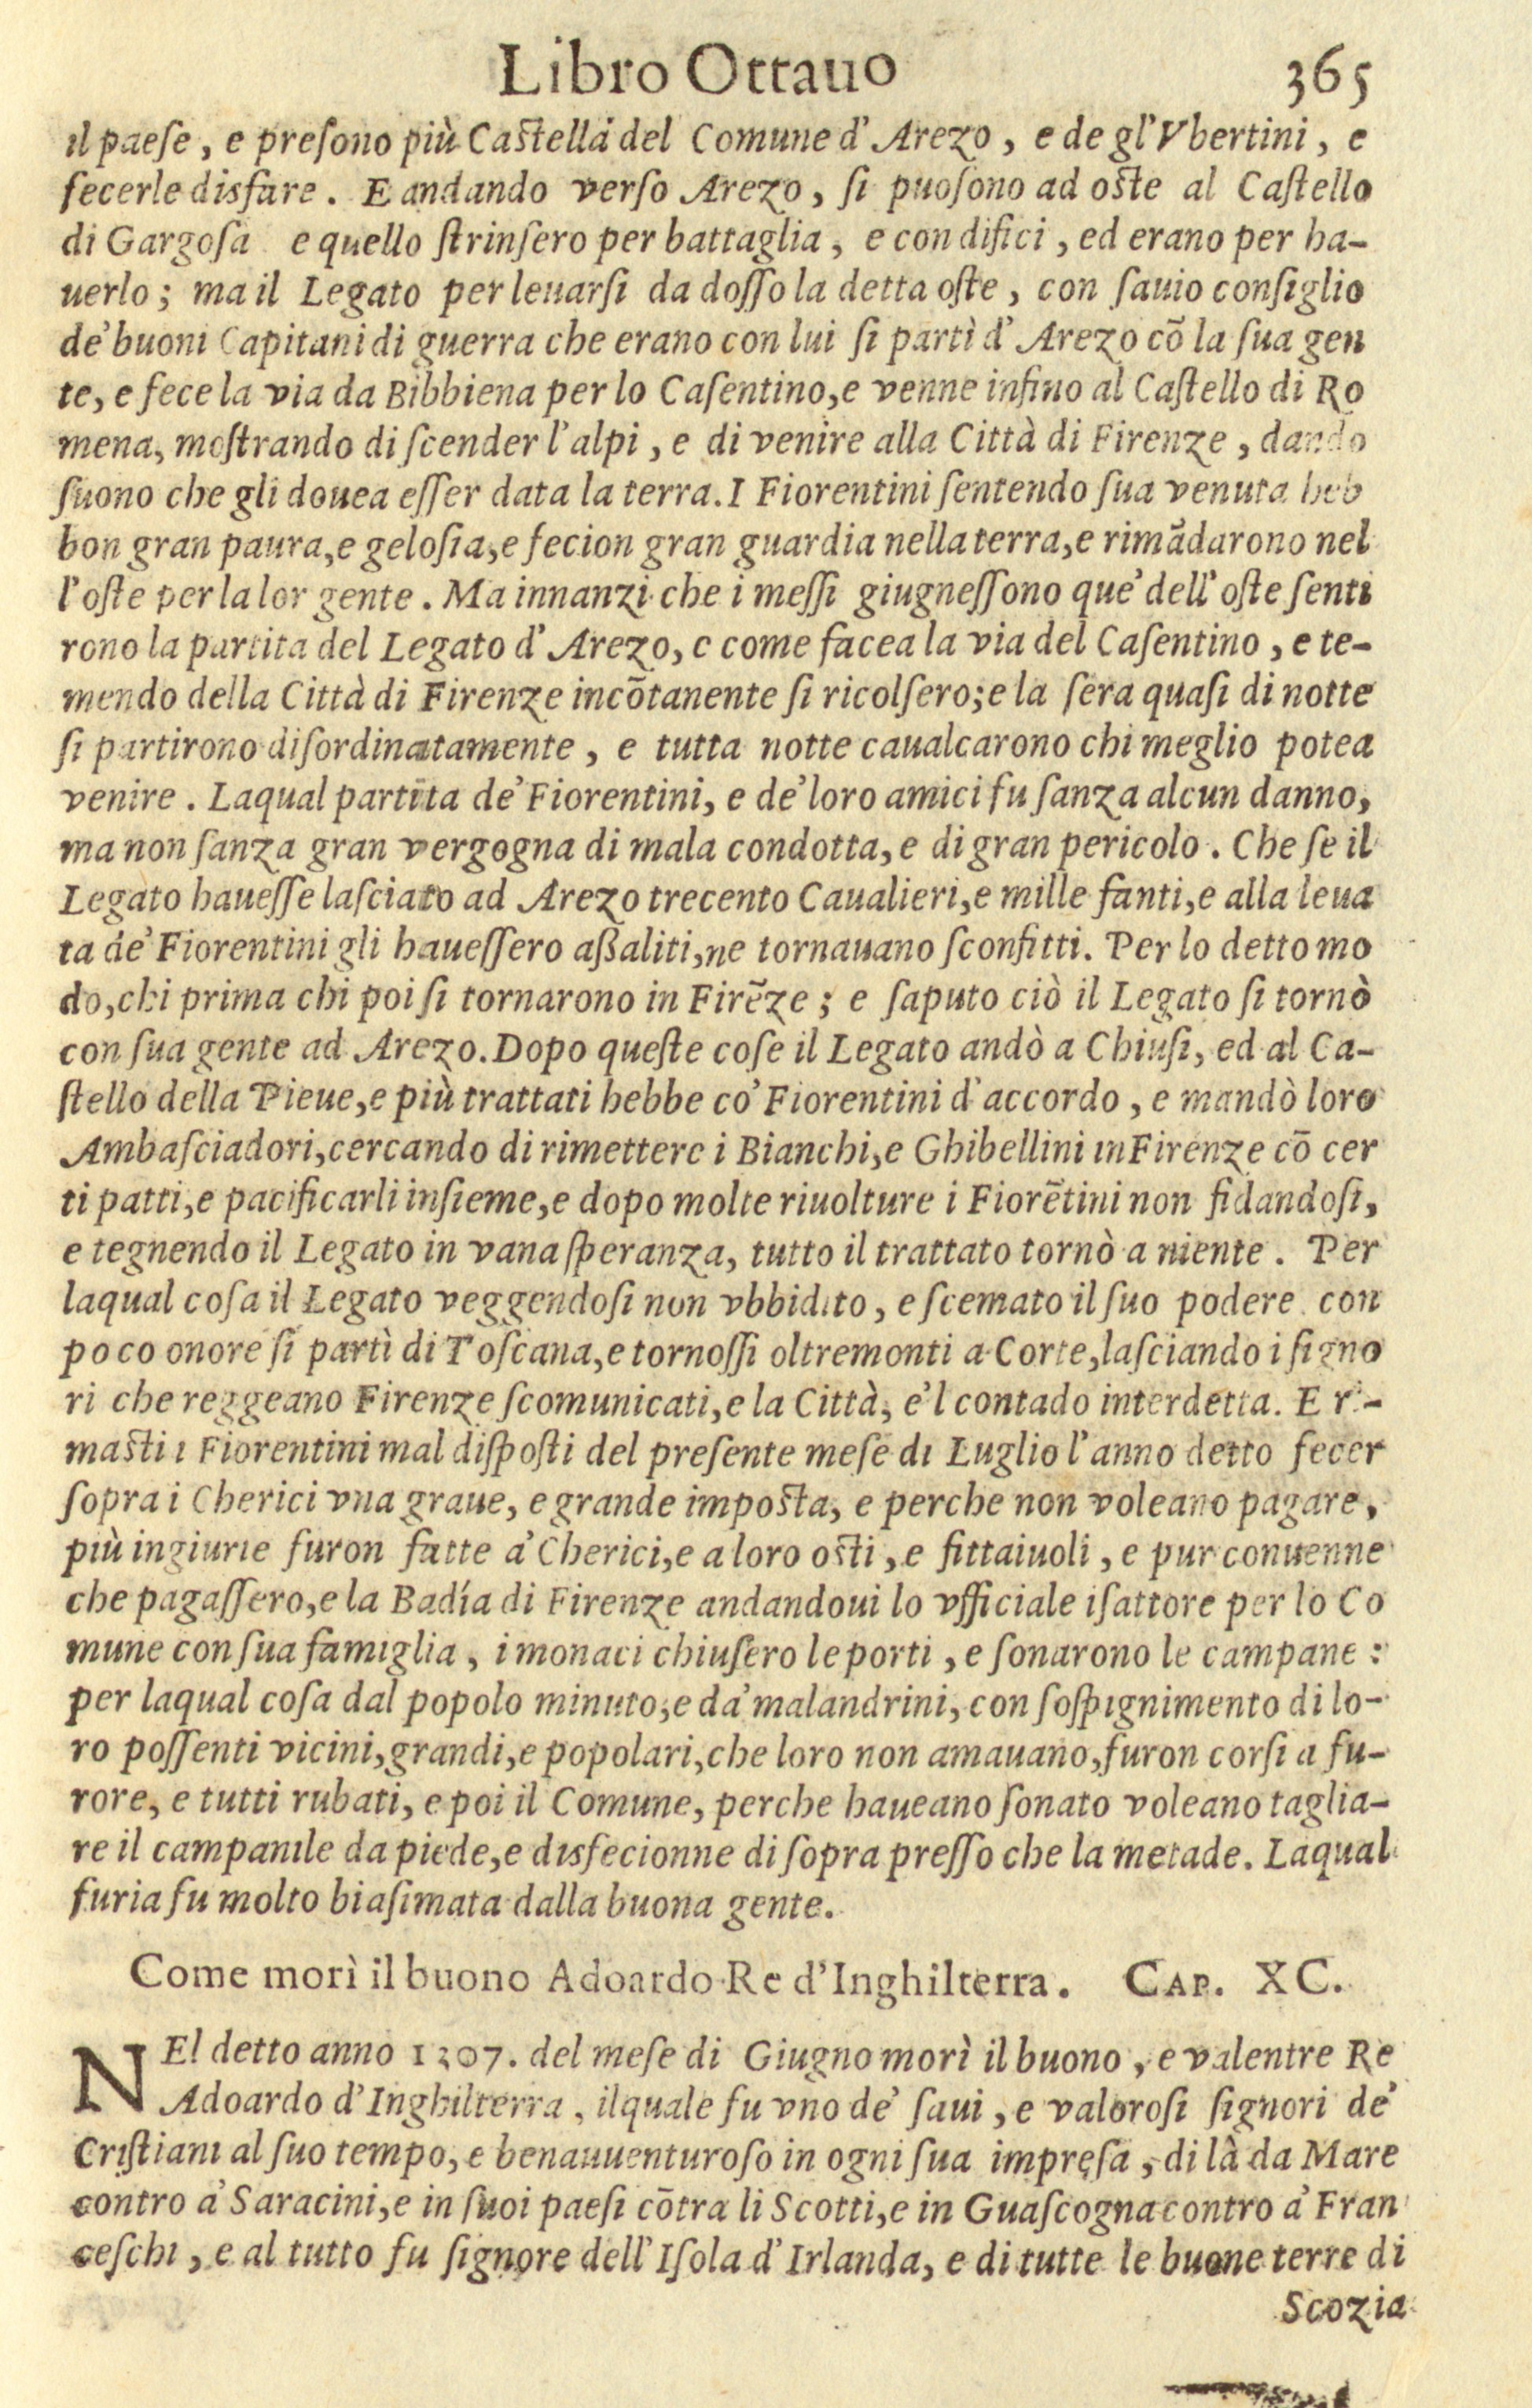 Libro Ottauo 365
il paeſe, e preſono più Caſtella del Comune d'Arezo, e de gl'Vbertini, e
fecerle disfare. E andando verſo Arezo, ſi puoſono ad oſte al Caſtello
di Gargoſa e quello ſtrinſero per battaglia, e con difici, ed erano per ha-
uerlo; ma il Legato per leuarſi da doſſo la detta oſte, con ſauio conſiglio
de' buoni Capitani di guerra che erano con lui ſi partì d'Arezo cõ la ſua gen
te, e fece la via da Bibbiena per lo Caſentino, e venne infino al Caſtello di Ro
mena, moſtrando di ſcender l'alpi, e di venire alla Città di Firenze, dando
ſuono che gli douea eſſer data la terra. I Fiorentini ſentendo ſua venuta heb
bon gran paura, e geloſia, e fecion gran guardia nella terra, e rimãdarono nel
l'oſte per la lor gente. Ma innanzi che i meſſi giugneſſono que' dell'oſte ſenti
rono la partita del Legato d'Arezo, e come facea la via del Caſentino, e te-
mendo della Città di Firenze incõtanente ſi ricolſero; e la ſera quaſi di notte
ſi partirono diſordinatamente, e tutta notte caualcarono chi meglio potea
venire. Laqual partita de' Fiorentini, e de' loro amici fu ſanza alcun danno,
ma non ſanza gran vergogna di mala condotta, e di gran pericolo. Che ſe il
Legato haueſſe laſciato ad Arezo trecento Caualieri, e mille fanti, e alla leua
ta de' Fiorentini gli haueſſero aßaliti, ne tornauano ſconfitti. Per lo detto mo
do, chi prima chi poi ſi tornarono in Firẽze; e ſaputo ciò il Legato ſi tornò
con ſua gente ad Arezo. Dopo queſte coſe il Legato andò a Chiuſi, ed al Ca-
ſtello della Pieue, e più trattati hebbe co' Fiorentini d'accordo, e mandò loro
Ambaſciadori, cercando di rimettere i Bianchi, e Ghibellini in Firenze cõ cer
ti patti, e pacificarli inſieme, e dopo molte riuolture i Fiorẽtini non fidandoſi,
e tegnendo il Legato in vana ſperanza, tutto il trattato tornò a niente. Per
laqual coſa il Legato veggendoſi non vbbidito, e ſcemato il ſuo podere con
poco onore ſi partì di Toſcana, e tornoſſi oltremonti a Corte, laſciando i ſigno
ri che reggeano Firenze ſcomunicati, e la Città, e'l contado interdetta. E ri-
maſti i Fiorentini mal diſpoſti del preſente meſe di Luglio l'anno detto fecer
ſopra i Cherici vna graue, e grande impoſta, e perche non voleano pagare,
più ingiurie furon fatte a' Cherici, e a loro oſti, e fittaiuoli, e pur conuenne
che pagaſſero, e la Badía di Firenze andandoui lo vfficiale iſattore per lo Co
mune con ſua famiglia, i monaci chiuſero le porti, e ſonarono le campane:
per laqual coſa dal popolo minuto, e da' malandrini, con ſoſpignimento di lo-
ro poſſenti vicini, grandi, e popolari, che loro non amauano, furon corſi a fu-
rore, e tutti rubati, e poi il Comune, perche haueano ſonato voleano taglia-
re il campanile da piede, e disfecionne di ſopra preſſo che la metade. Laqual
furia fu molto biaſimata dalla buona gente.
Come morì il buono Adoardo Re d'Inghilterra. CAP. XC.
NEl detto anno 1307. del meſe di Giugno morì il buono, e valentre Re
Adoardo d'Inghilterra, ilquale fu vno de' ſaui, e valoroſi ſignori de'
Criſtiani al ſuo tempo, e benauuenturoſo in ogni ſua impreſa, di là da Mare
contro a' Saracini, e in ſuoi paeſi cõtra li Scotti, e in Guaſcogna contro a' Fran
ceſchi, e al tutto fu ſignore dell'Iſola d'Irlanda, e di tutte le buone terre di
Scozia